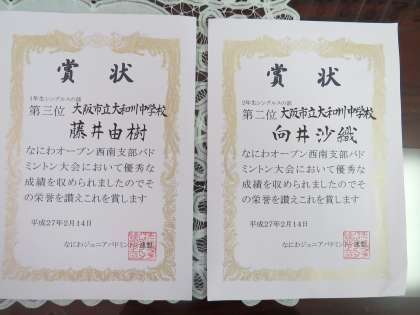 賞状
1年生シングルスの部
第三位 大阪市立大和川中学校
藤井由樹
なにわオープン西南支部バド
ミントン大会において優秀な
成績を収められましたのでそ
の栄誉を讃えこれを賞します
平成27年2月14日
なにわジュニアバドミントン連盟
賞状
2年生シングルスの部
第二位 大阪市立大和川中学校
向井沙織
なにわオープン西南支部バド
ミントン大会において優秀な
成績を収められましたのでそ
の栄誉を讃えこれを賞します
平成27年2月14日
なにわジュニアバドミントン連盟